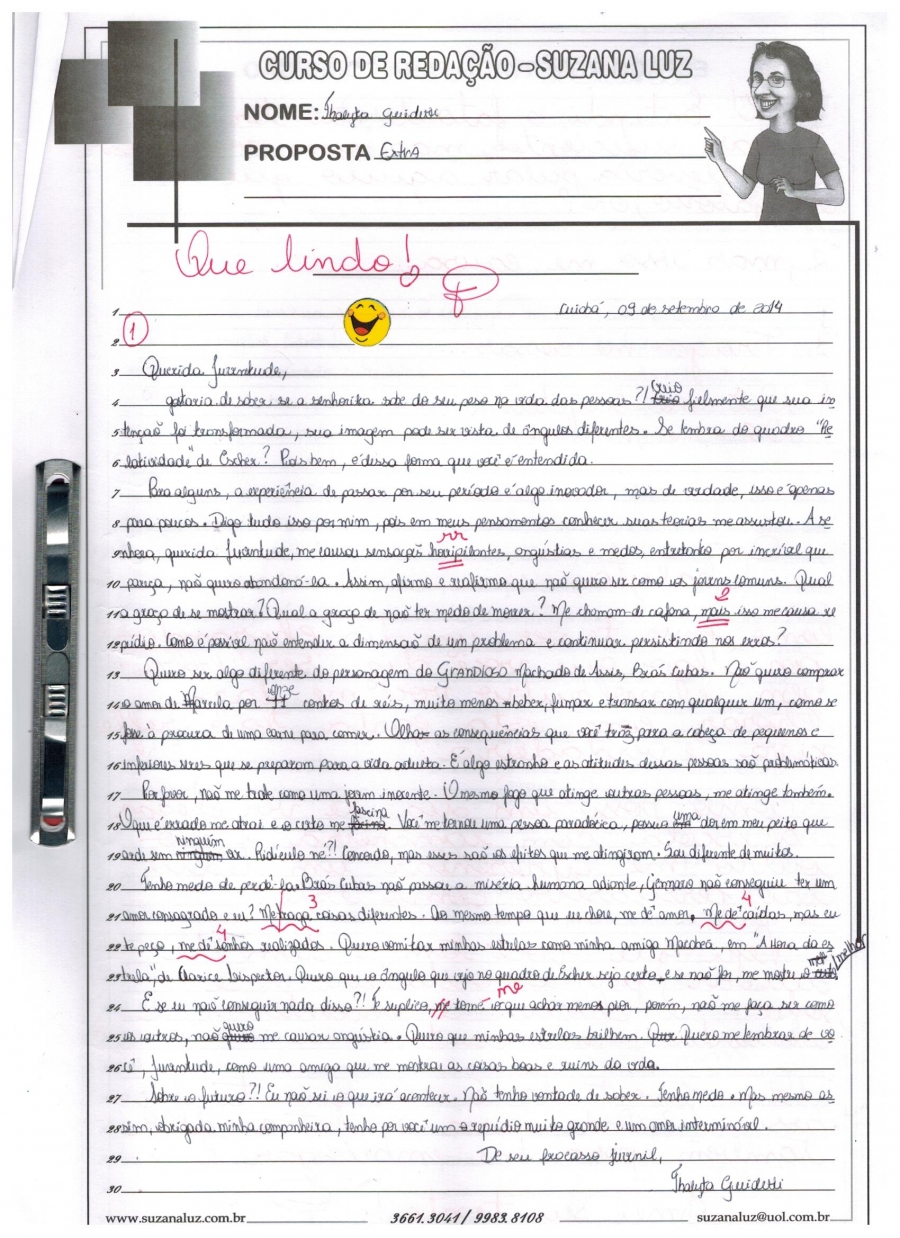 CURSO DE REDAÇÃO - SUZANA LUZ
NOME: Thalyta Guidesi
PROPOSTA Extra
Que lindo!
1 Cuiabá, 09 de setembro de 2014
1
2
3 Querida Juventude,
4 gostaria de saber se a senhorita sabe do seu peso na vida das pessoas?! Creio fielmente que sua in
5 tenção foi transformada, sua imagem pode ser vista de ângulos diferentes. Se lembra do quadro "Re
6 latividade" de Escher? Pois bem, é dessa forma que você é entendida.
7 Para alguns, a experiência de passar por seu período é algo inovador, mas de verdade, isso é apenas
8 para poucos. Digo tudo isso por mim, pois em meus pensamentos conhecer suas teorias me assustou. A se
rr
9 nhora, querida Juventude, me causou sensações horripilantes, angústias e medos, entretanto por incrível que
10 pareça, não quero abandoná-la. Assim, afirmo e reafirmo que não quero ser como os jovens comuns. Qual
e
11 a graça de se mostrar? Qual a graça de não ter medo de morrer? Me chamam de cafona, mais isso me causa re
12 púdio. Como é possível não entender a dimensão de um problema e continuar persistindo nos erros?
13 Quero ser algo diferente do personagem do GRANDIOSO Machado de Assis, Brás Cubas. Não quero comprar
14 o amor de Marcela por onze contos de réis, muito menos beber, fumar e transar com qualquer um, como se
15 fosse à procura de uma carne para comer. Olha as consequências que você traz para a cabeça de pequenos e
16 inferiores seres que se preparam para a vida adulta. É algo estranho e as atitudes dessas pessoas são problemáticas.
17 Por favor, não me trate como uma jovem inocente. O mesmo fogo que atinge outras pessoas, me atinge também.
18 O que é errado me atrai e o certo me fascina. Você me tornou uma pessoa paradóxica, possuo uma dor em meu peito que
19 arde sem ninguém ver. Ridículo né?! Concordo, mas esses são os efeitos que me atingiram. Sou diferente de muitos.
20 Tenho medo de perdê-la. Brás Cubas não passou a miséria humana adiante, Gennaro não conseguiu ter um
3
4
21 amor consagrado e eu? Me traga coisas diferentes. Ao mesmo tempo que eu chore, me dê amor. Me dê caídas, mas eu
4
22 te peço, me dê sonhos realizados. Quero vomitar minhas estrelas como minha amiga Macabéa, em "A Hora da es
23 trela", de Clarice Lispector. Quero que o ângulo que vejo no quadro de Escher seja certo, e se não for, me mostre o melhor
me
24 E se eu não conseguir nada disso?! Te suplico, me torne o que achar menos pior, porém, não me faça ser como
25 os outros, não quero me causar angústia. Quero que minhas estrelas brilhem. Quero me lembrar de vo
26 cê, Juventude, como uma amiga que me mostrou as coisas boas e ruins da vida.
27 Sobre o futuro?! Eu não sei o que irá acontecer. Não tenho vontade de saber. Tenho medo. Mas mesmo as
28 sim, obrigada minha companheira, tenho por você um repúdio muito grande e um amor interminável.
29 De seu fracasso juvenil,
30 Thalyta Guidesi
www.suzanaluz.com.br 3661.3041 / 9983.8108 suzanaluz@uol.com.br